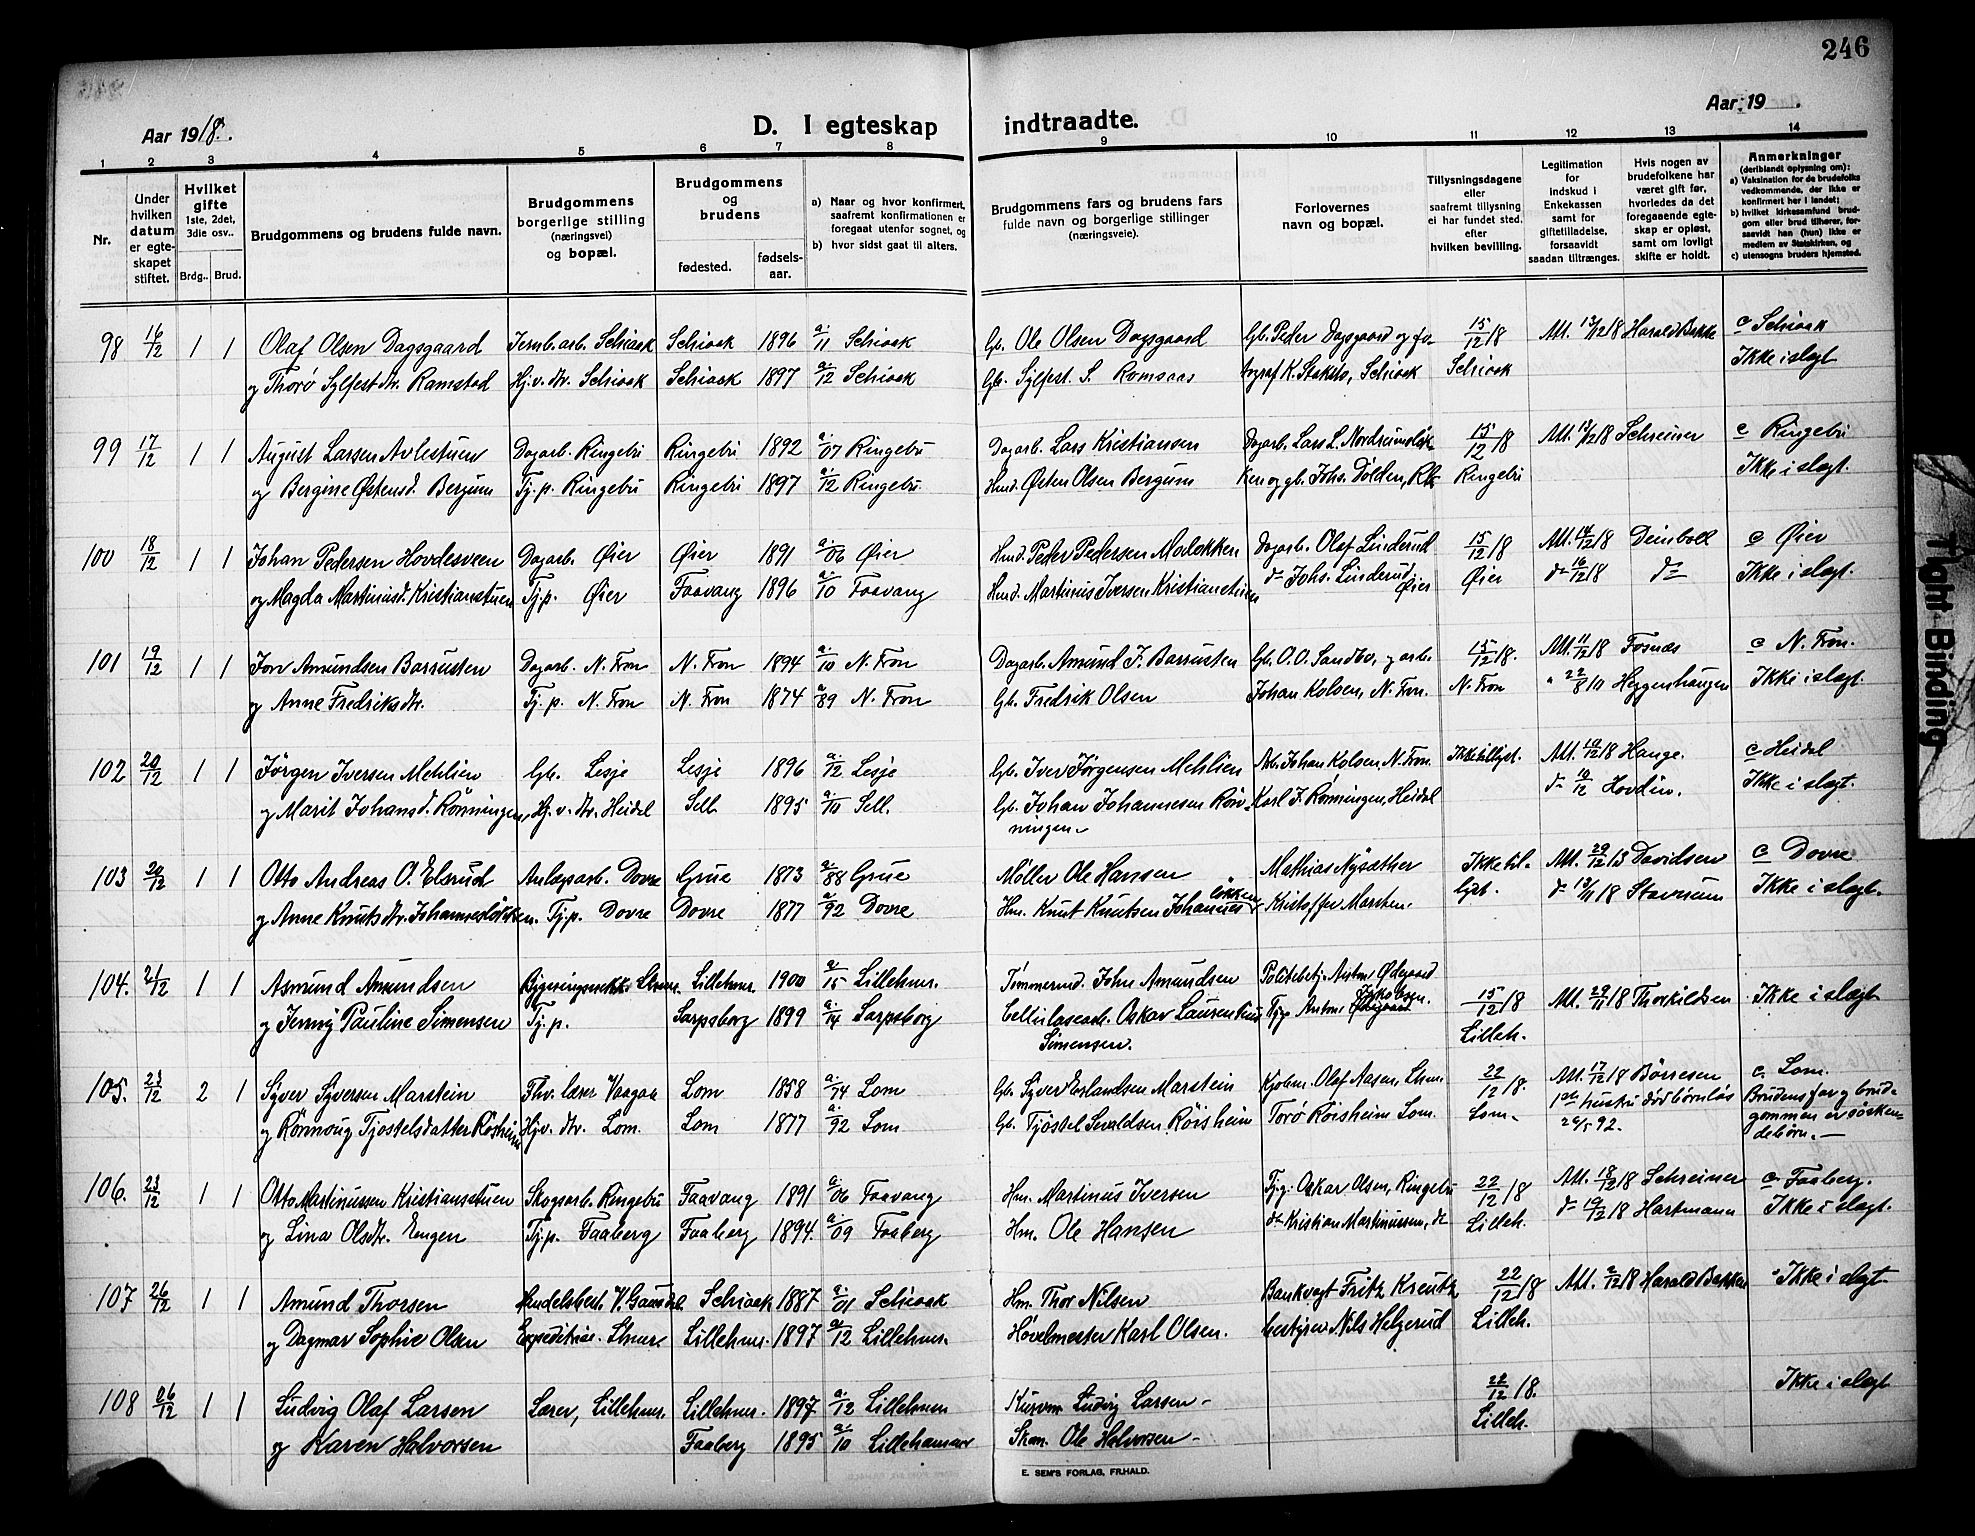 246
Aar 1918.
D. I egteskap indtraadte.
Aar 19 .
1 2 3 4 5 6 7 8 9 10 11 12 13 14
Nr.
Under hvilken datum er egteskapet stiftet.
Hvilket gifte 1ste, 2det, 3die osv..
Brdg.. Brud.
Brudgommens og brudens fulde navn.
Brudgommens borgerlige stilling (næringsvei) og bopæl.
Brudgommens og brudens
fødested. fødselsaar.
a) Naar og hvor konfirmert, saafremt konfirmationen er foregaat utenfor sognet, og
b) hvor sidst gaat til alters.
Brudgommens fars og brudens fars fulde navn og borgerlige stillinger (næringsveie).
Forlovernes navn og bopæl.
Tillysningsdagene eller saafremt tillysning ei har fundet sted, efter hvilken bevilling.
Legitimation for indskud i Enkekassen samt for giftetilladelse, forsaavidt saadan tiltrænges.
Hvis nogen av brudefolkene har været gift før, hvorledes da det foregaaende egteskap er opløst, samt om lovligt skifte er holdt.
Anmerkninger (deriblandt oplysning om):
a) Vaksination for de brudefolks vedkommende, der ikke er konfirmert her i landet;
b) hvilket kirkesamfund brudgom eller brud tilhører, forsaavidt han (hun) ikke er medlem av Statskirken, og
c) utensogns bruders hjemsted.
98 16/12 1 1 Olaf Olsen Dagsgaard Jernb.arb. Schiaak Schiaak 1896 a. 11 Schiaak Gb. Ole Olsen Dagsgaard Gb. Peder Dagsgaard og fo- 15/12 18 Att. 13/12 18 Harald Bakke c Schiaak
og Thorø Sylfestdtr. Ramstad Hj.v. dtr. Schiaak Schiaak 1897 a. 12 Schiaak Gb. Sylfest S. Romsaas Schiaak Ikke i slegt
99 17/12 1 1 August Larsen Avlestuen Dagarb. Ringebu Ringebu 1892 a. 07 Ringebu Dagarb. Lars Kristiansen Dagarb. Lars L. 15/12 18 Att. Schreiner c Ringebu
og Bergine Østensd. Bergum Tj.p. Ringebu Ringebu 1897 a. 12 Ringebu Hmd. Østen Olsen Bergum ken og gb. Johs. Dölden, Ringebu Ikke i slegt.
100 18/12 1 1 Johan Pedersen Hovdesveen Dagarb. Øier Øier 1891 a. 06 Øier Hmd. Peder Pedersen Moløkken Dagarb. Olaf Linderud 15/12 18 Att. 14/12 18 Deinboll c Øier
og Magda Martinusd. Kristianstuen Tj.p. Øier Faavang 1896 a. 10 Faavang Hmd. Martinus Iversen Kristianstuen do Johs. Linderud Øier Øier do 16/12 18 do Ikke i slegt.
101 19/12 1 1 Jon Amundsen Barrusten Dagarb. N. Fron N. Fron 1894 a. 10 N. Fron Dagarb. Amund J. Barrusten Gb. O. O. Sandbo, og arb. 15/12 18. Att. 11/12 18 Fosnæs c N. Fron.
og Anne Fredriksdtr. Tj.p. N. Fron N. Fron 1874 a 89 N. Fron Gb. Fredrik Olsen Johan Kolsen, N. Fron. N. Fron " 22/8 11 Heggenhaugen Ikke i slegt.
102 20/12 1 1 Jørgen Iversen Mehlien Gb. Lesje Lesje 1896 a. 12 Lesje Gb. Iver Jørgensen Mehlien Arb. Johan Kolsen, N. Fron Ikke tillyst. Att. 10/12 18 Hange. c Heidal
og Marit Johansd. Rönningen, Hj.v. dtr. Heidal Sell 1895 a. 10 Sell. Gb. Johan Johannesen Rönningen. Karl J. Rönningen, Heidal do 10/12 Hovdin. Ikke i slegt.
103 20/12 1 1 Otto Andreas O. Elsrud Anlægsarb. Dovre Grue 1873 a. 88 Grue Møller Ole Hansen Mathias Nysæther Ikke til- Att. 29/12 13 Davidsen c Dovre
og Anne Knutsdtr. Johannesløkken. Tj.p. Dovre Dovre 1877 a. 92 Dovre Hm. Knut Knutsen Johannesløkken Kristoffer Marsten. lyst. do 13/11 18 Stavrum Ikke i slegt.
104. 21/12 1 1 Asmund Amundsen Lhmr. Lillehmr. 1900 a. 15 Lillehmr. Tømmermd. John Amundsen Politibetj. Anton Ødegaard
og Jenny Pauline Simensen Tj.p. Sarpsborg 1899 a. 14 Sarpsborg Cellulosearb. Oskar Laurentius Simensen. Anton Jakobsen. 15/12 18 Lilleh. Att. 29/11 18 Thorkildsen Ikke i slegt
105. 23/12 2 1 Syver Syversen Marstein Fhv. lærer Vaagaa Lom 1858 a. 74 Lom Gb. Syver Erlandsen Marstein Kjøbm. Olaf Aasen, Lhmr. 22/12 18. Att. 17/12 18 Börresen c. Lom.
og Rönnoug Tjöstelsdatter Röisheim Hj.v. dtr. Lom. Lom 1877 a. 92 Lom Gb. Tjöstel Sevaldsen Röisheim Torø Röisheim Lom. Lom. 1ste hustru död börnlös 26/5 92. Brudens far og brudgommen er søskendebörn.
106. 23/12 1 1 Otto Martinussen Kristiansstuen Skogsarb. Ringebu Faavang 1891 a. 06 Faavang Hm. Martinus Iversen Tj.g. Oskar Olsen, Ringebu 22/12 18 Att. 18/12 18 Schreiner c Faaberg.
og Lina Olsdtr. Engen Tj.p. Faaberg Faaberg 1894. a. 09 Faaberg Hm. Ole Hansen do Kristian Martinussen, do Lilleh. do 19/12 18 Hartmann Ikke i slegt.
107 26/12 1 1 Amund Thorsen Handelsbest. V. Gausdal Schiaak 1887 a. 01 Schiaak Hm. Thor Nilsen Bankvagt Fritz Kreutz 22/12 18 Att. 2/12 18 Harald Bakken Ikke i slegt
og Dagmar Sophie Olsen Expeditrise. Lhmr. Lillehmr. 1897 a. 12 Lillehmr. Høvelmester Karl Olsen. bestyrer Nils Helgerud Lilleh.
108 26/12 1 1 Ludvig Olaf Larsen Lærer, Lillehmr. Lillehmr. 1897 a. 12 Lillehmr Ludvig Larsen 22/12 18. Lilleh. Ikke i slegt
og Karen Halvorsen Faaberg 1895 a. 10 Lillehammer Skom. Ole Halvorsen
E. SEM'S FORLAG, FR.HALD.
Tight Binding